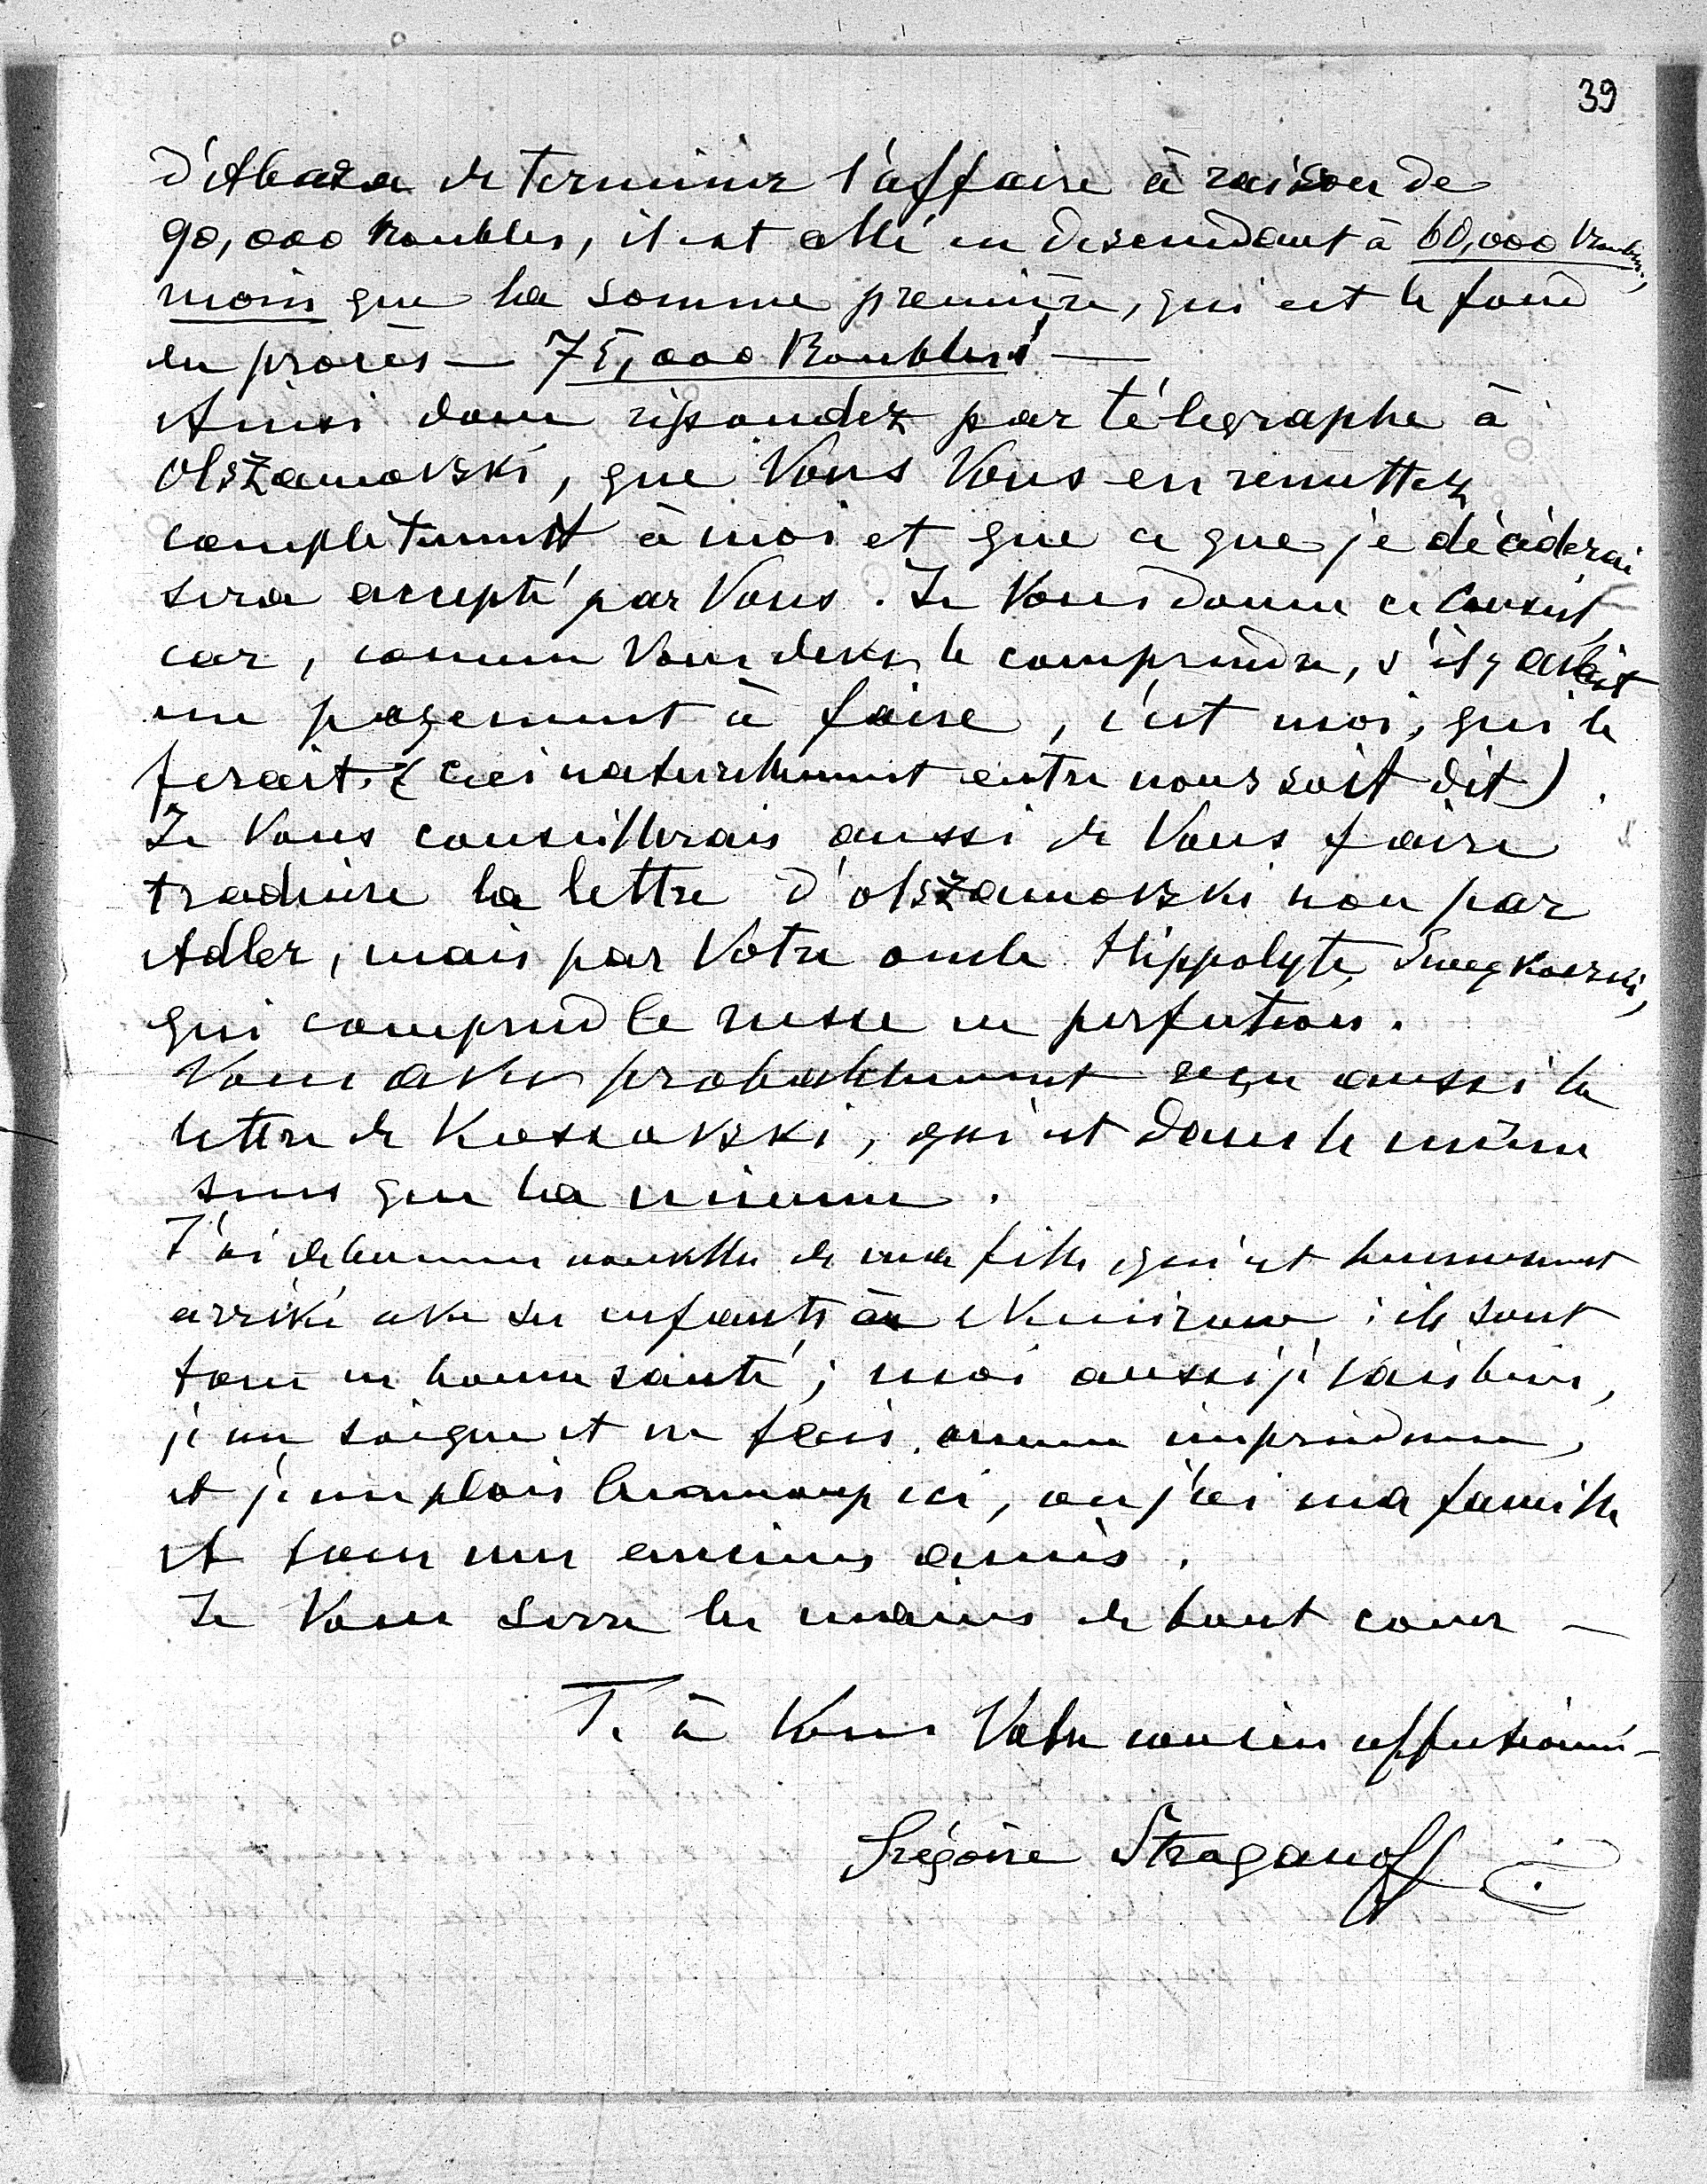 39
d'Abaza de terminer l'affaire à raison de
90,000 Roubles, il est allé en descendant à 60,000 Roubles,
moin que la somme première, qui est le fond
du procès — 75,000 Roubles! —
Ainsi donc répondez par télégraphe à
Olszamovski, que Vous Vous en remettez
complètement à moi et que ce que je déciderai
sera accepté par Vous. Je Vous donne ce conseil,
car, comme Vous devez le comprendre, s'il y avait
un payement à faire, c'est moi, qui le
ferait. (ceci naturellement entre nous soit dit).
Je Vous conseillerais aussi de Vous faire
traduire la lettre d'Olszamovski non par
Adler, mais par Votre oncle Hippolyte
qui comprend le russe en perfection.
Vous avez probablement reçu aussi la
lettre de Kossovski, qui est dans le même
sens que la mienne.
J'ai de bonnes nouvelles de ma fille, qui est heureusement
arrivé avec ses enfants à Niemirow: ils sont
tous en bonne santé; moi aussi je vais bien,
je me soigne et ne fais aucune imprudence,
et je me plais beaucoup ici, où j'ai ma famille
et tous mes anciens amis.
Je Vous serre les mains de tout coeur —
T. à Vous Votre cousin affectionné —
Grégoire Stroganoff